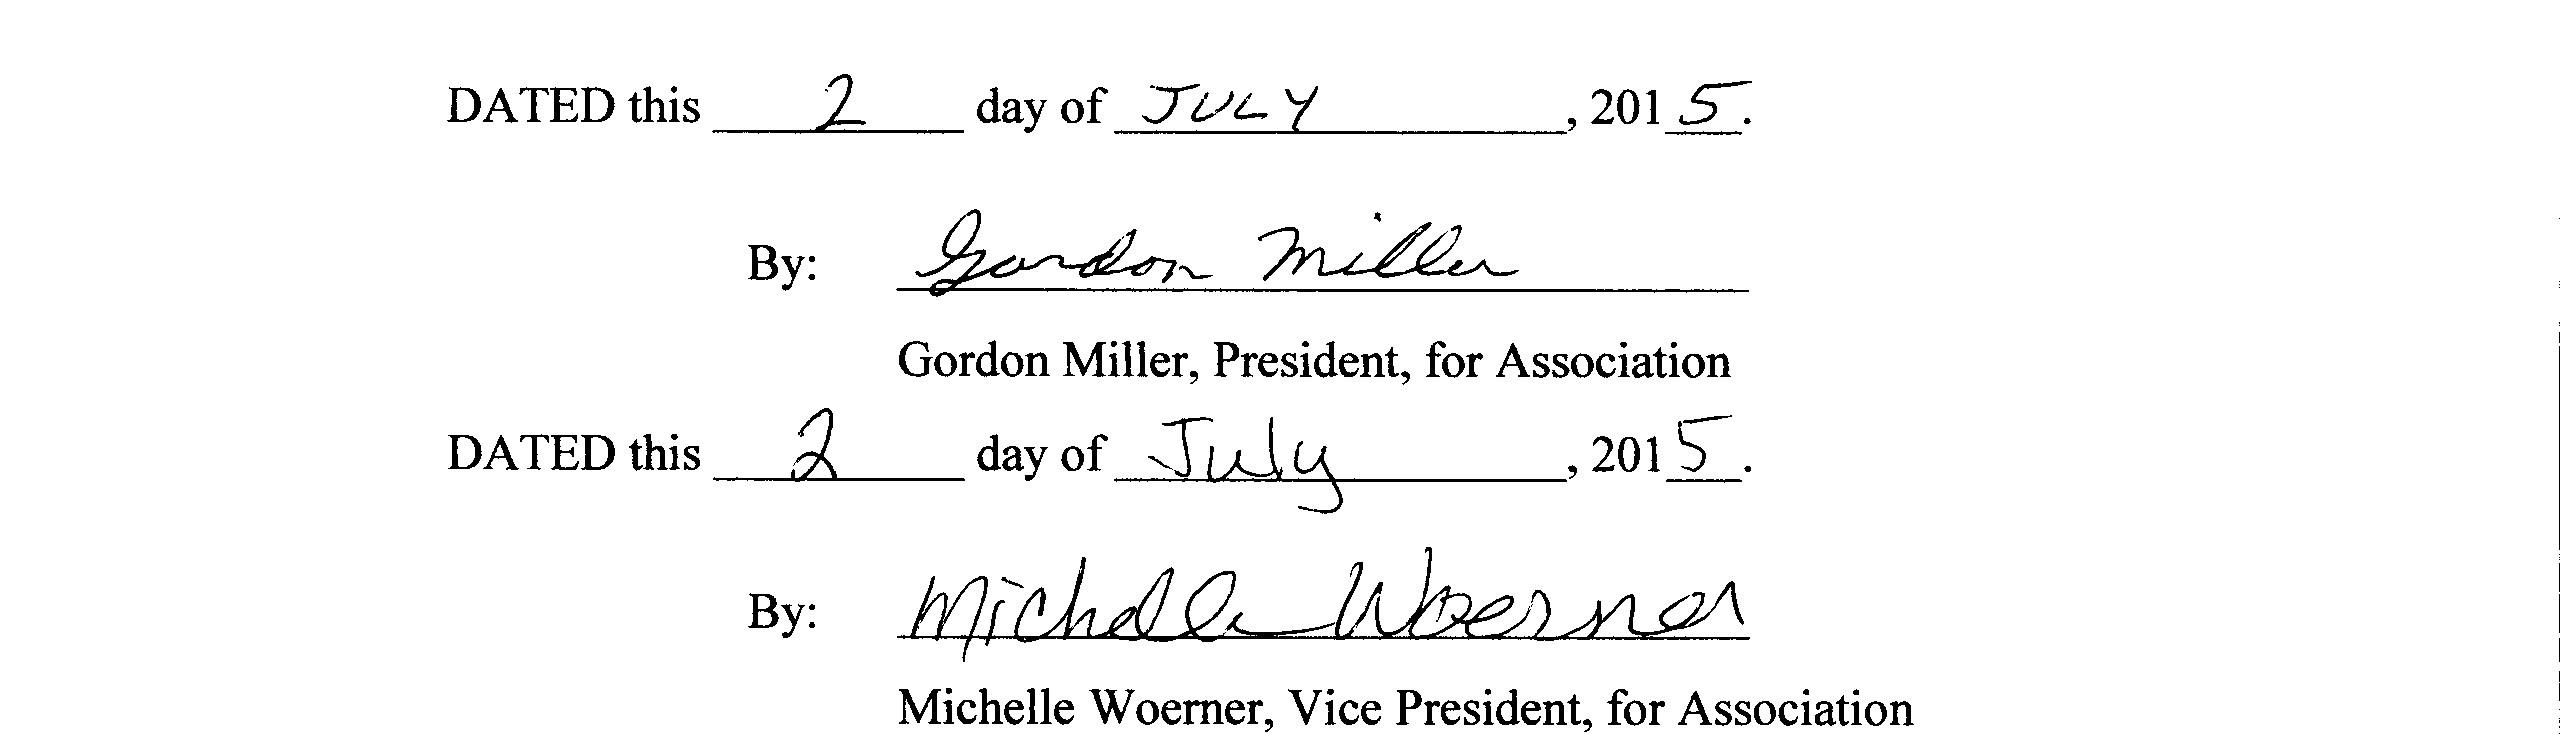 DATED this 2 day of JULY, 2015.
By: Gordon Miller
Gordon Miller, President, for Association
DATED this 2 day of July, 2015.
By: Michelle Woerner
Michelle Woerner, Vice President, for Association